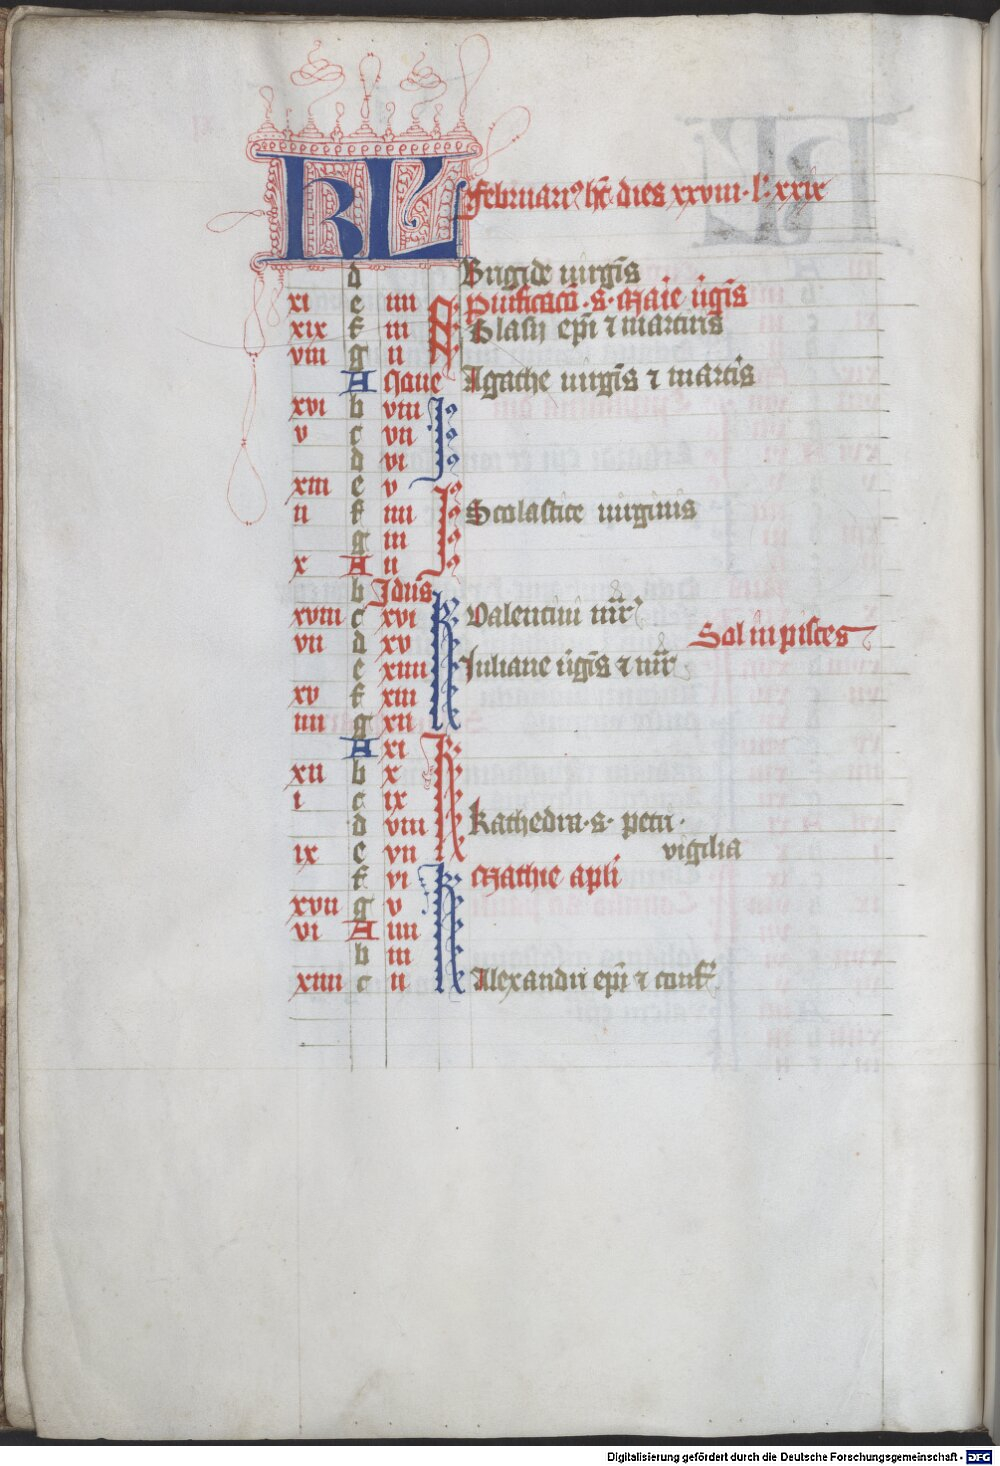 KL Februari⁹ hꝫ dies xxviii · lꝰ xxix
d Brigide uirgīs
xi e iiii N Purificacō · s · Marie ūgīs
xix f iii Blasij epī ⁊ martiris
viii g ii Agathe uirgīs ⁊ martiris
A None
xvi b viii Id
v c vii
d vi
xiii e v Id
ii f iiii Scolastice uirginis
g iii
x A ii
b Idus
xviii c xvi K Valentini mr̄
vii d xv Sol in pisces
e xiiii Iuliane ūgīs ⁊ mr̄
xv f xiii
iiii g xii
A xi K
xii b x
i c ix
d viii Kathedra · s · petri ·
ix e vii vigilia
f vi K Mathie apli
xvii g v
vi A iiii
b iii
xiiii c ii Alexandri epī ⁊ conf
Digitalisierung gefördert durch die Deutsche Forschungsgemeinschaft - DFG